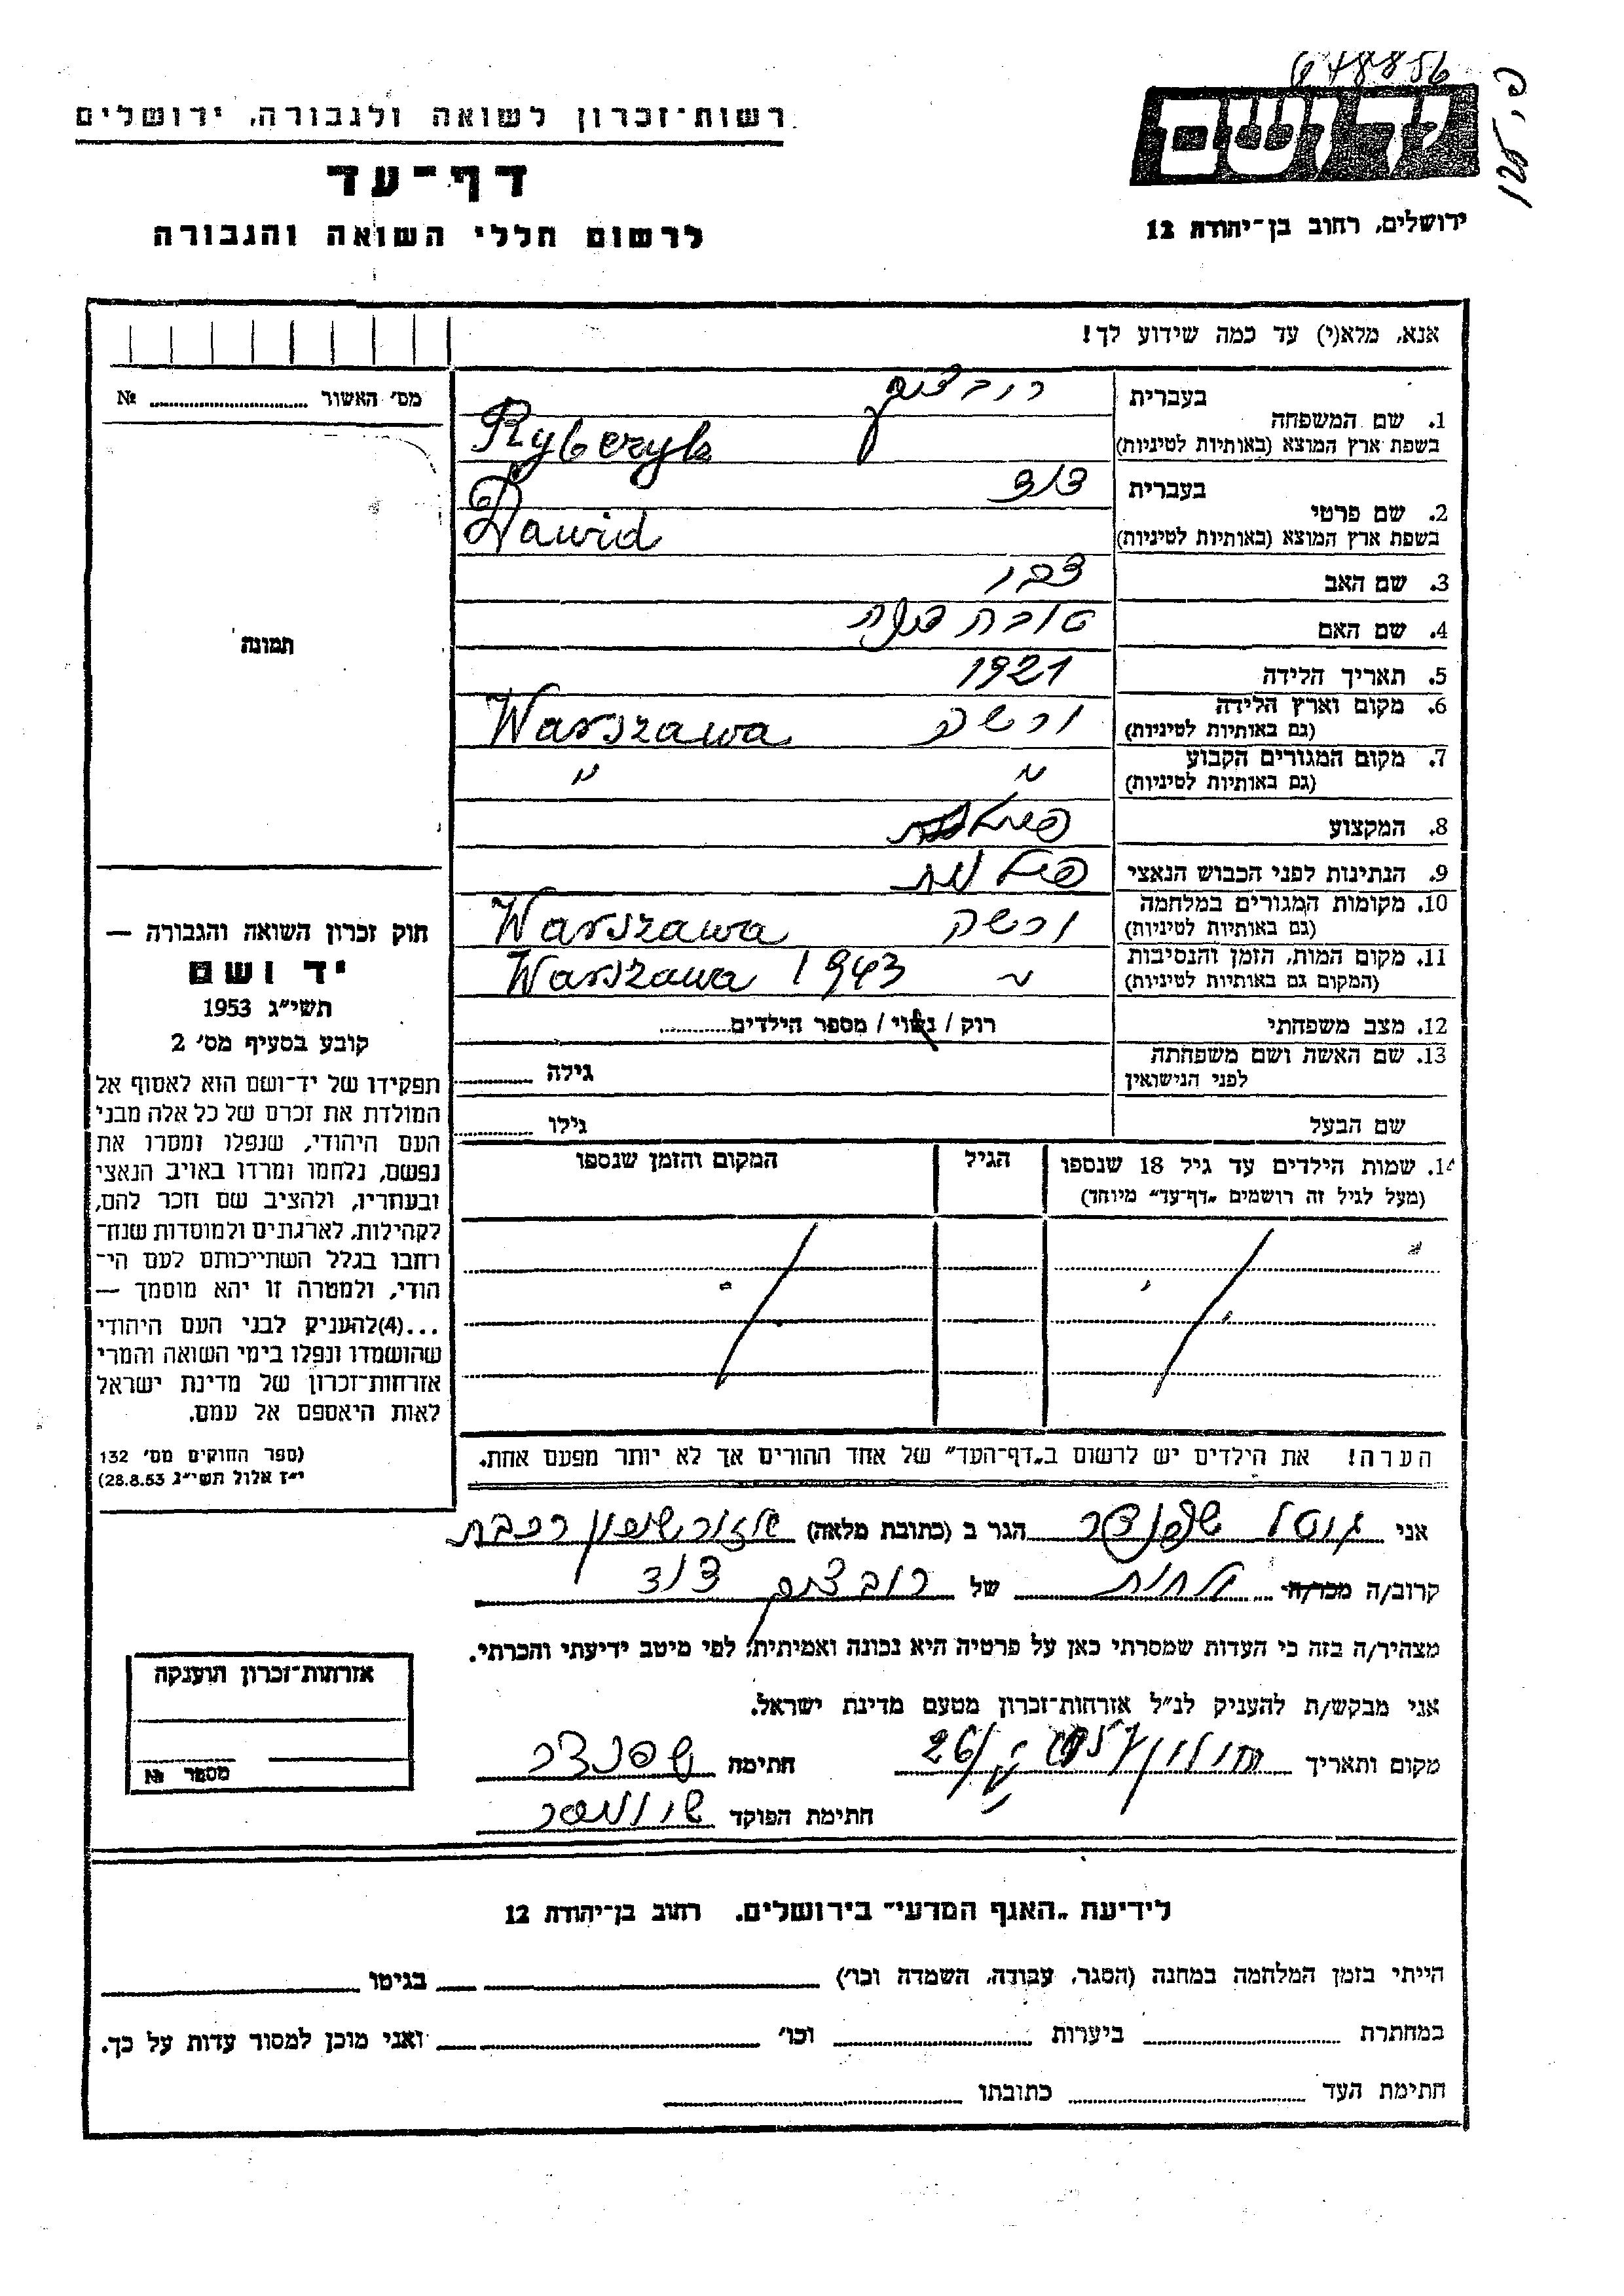 678856
יד ושם
רשות־זכרון לשואה ולגבורה, ירושלים
דף־עד
לרשום חללי השואה והגבורה
ירושלים, רחוב בן־יהודה 12
אנא, מלא(י) עד כמה שידוע לך!
מס׳ האשור № ........
1. שם המשפחה
בעברית
בשפת ארץ המוצא (באותיות לטיניות)
Ryberzyk
2. שם פרטי
בעברית
דוד
בשפת ארץ המוצא (באותיות לטיניות)
Dawid
3. שם האב
4. שם האם טובה
5. תאריך הלידה 1921
6. מקום וארץ הלידה ורשה Warszawa
(גם באותיות לטיניות)
7. מקום המגורים הקבוע " "
(גם באותיות לטיניות)
8. המקצוע
9. הנתינות לפני הכבוש הנאצי פולנית
10. מקומות המגורים במלחמה ורשה Warszawa
(גם באותיות לטיניות)
11. מקום המות, הזמן והנסיבות " Warszawa 1943
(המקום גם באותיות לטיניות)
12. מצב משפחתי רוק / נשוי / מספר הילדים........
13. שם האשה ושם משפחתה גילה ........
לפני הנישואין
שם הבעל גילו ........
14. שמות הילדים עד גיל 18 שנספו הגיל המקום והזמן שנספו
(מעל לגיל זה רושמים „דף־עד" מיוחד)
הערה! את הילדים יש לרשום ב„דף־העד" של אחד ההורים אך לא יותר מפעם אחת.
תמונה
חוק זכרון השואה והגבורה —
יד ושם
תשי״ג 1953
קובע בסעיף מס׳ 2
תפקידו של יד־ושם הוא לאסוף אל
המולדת את זכרם של כל אלה מבני
העם היהודי, שנפלו ומסרו את
נפשם, נלחמו ומרדו באויב הנאצי
ובעוזריו, ולהציב שם וזכר להם,
לקהילות, לארגונים ולמוסדות שנח־
רחבו בגלל השתייכותם לעם הי־
הודי, ולמטרה זו יהא מוסמך —
...(4)להעניק לבני העם היהודי
שהושמדו ונפלו בימי השואה והמרי
אזרחות־זכרון של מדינת ישראל
לאות היאספם אל עמם.
(ספר החוקים מס׳ 132
י״ז אלול תשי״ג 28.8.53)
אני שפנדר הגר ב (כתובת מלאה)
קרוב/ה מכר/ה של דוד
מצהיר/ה בזה כי העדות שמסרתי כאן על פרטיה היא נכונה ואמיתית, לפי מיטב ידיעתי והכרתי.
אני מבקש/ת להעניק לנ״ל אזרחות־זכרון מטעם מדינת ישראל.
מקום ותאריך חולון חתימה שפנדר
חתימת הפוקד
אזרחות־זכרון הוענקה
מספר №
לידיעת „האגף המדעי" בירושלים. רחוב בן־יהודה 12
הייתי בזמן המלחמה במחנה (הסגר, עבודה, השמדה וכו׳) בגיטו
במחתרת ביערות וכו׳ ואני מוכן למסור עדות על כך.
חתימת העד כתובתו